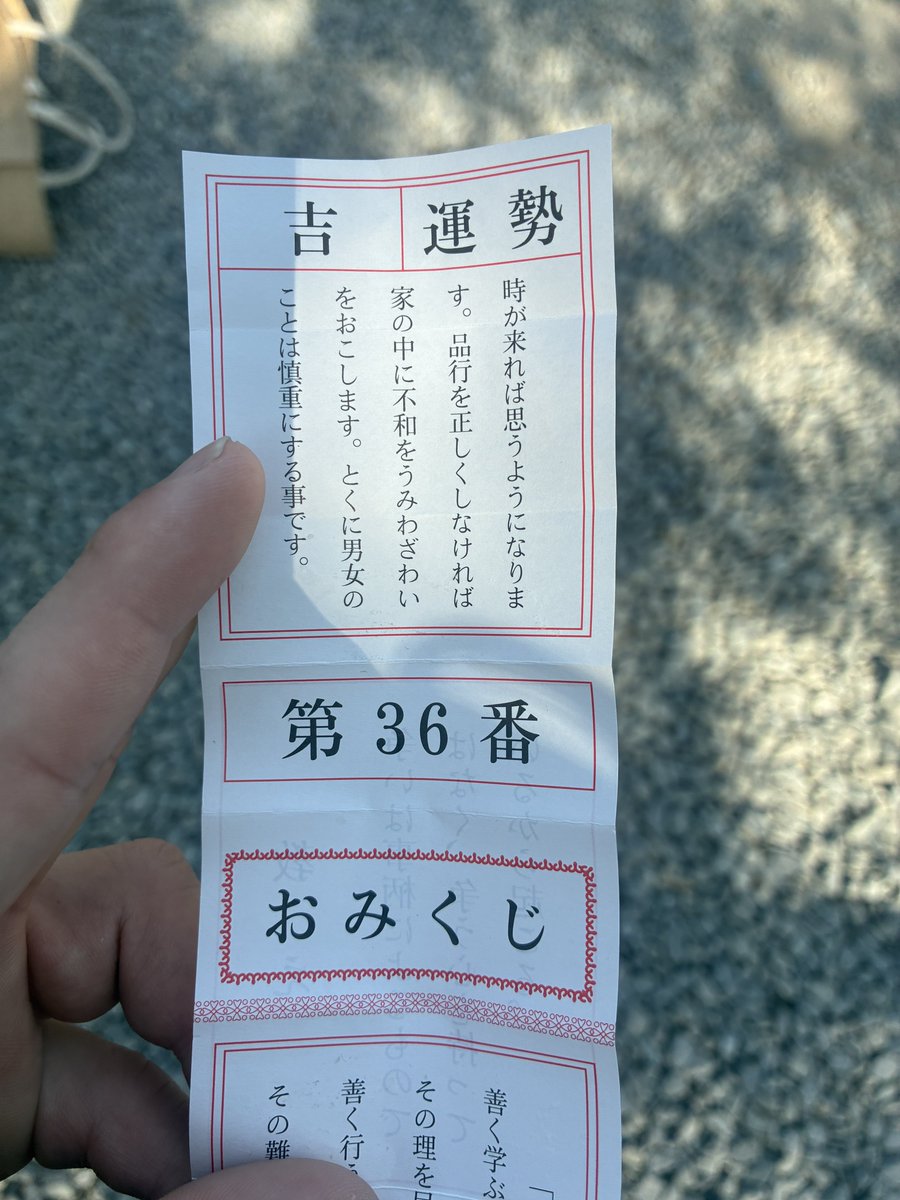 運勢
吉
時が来れば思うようになりま
す。品行を正しくしなければ
家の中に不和をうみわざわい
をおこします。とくに男女の
ことは慎重にする事です。
第36番
おみくじ
「
善く学ぶ
その理を
善く行
その難